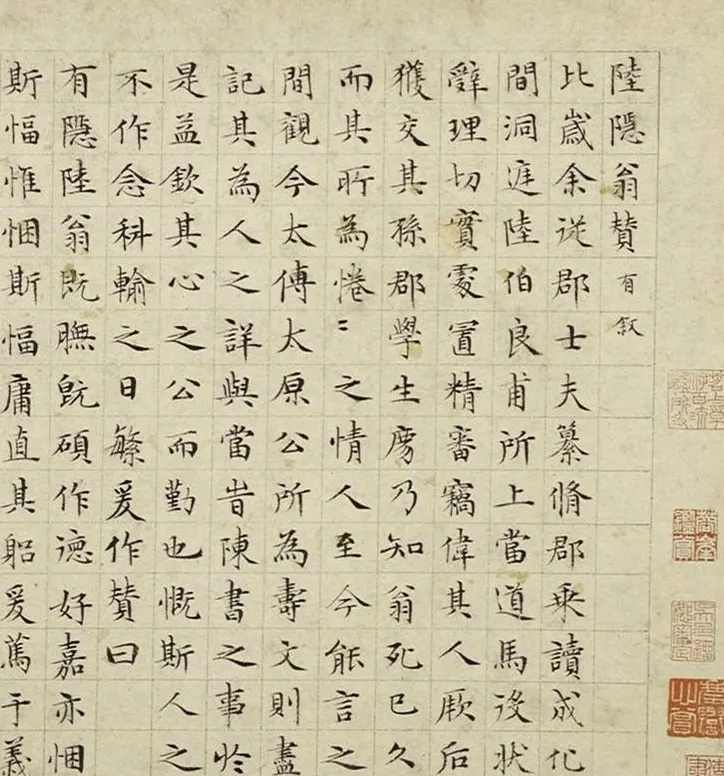 陸隱翁贊有敘
比歲余從郡士夫纂脩郡乘讀成化
間洞庭陸伯良甫所上當道馬役狀
辭理切實處置精審竊偉其人厥后
獲交其孫郡學生鴈乃知翁死已久
而其所為惓〻之情人至今能言之
間觀今太傅太原公所為壽文則盡
記其為人之詳與當時陳書之事於
是益欽其心之公而勤也慨斯人之
不作念科輸之日繁爰作贊曰
有隱陸翁既膴既碩作德好嘉亦悃
斯愊惟悃斯愊庸直其躬爰篤于義